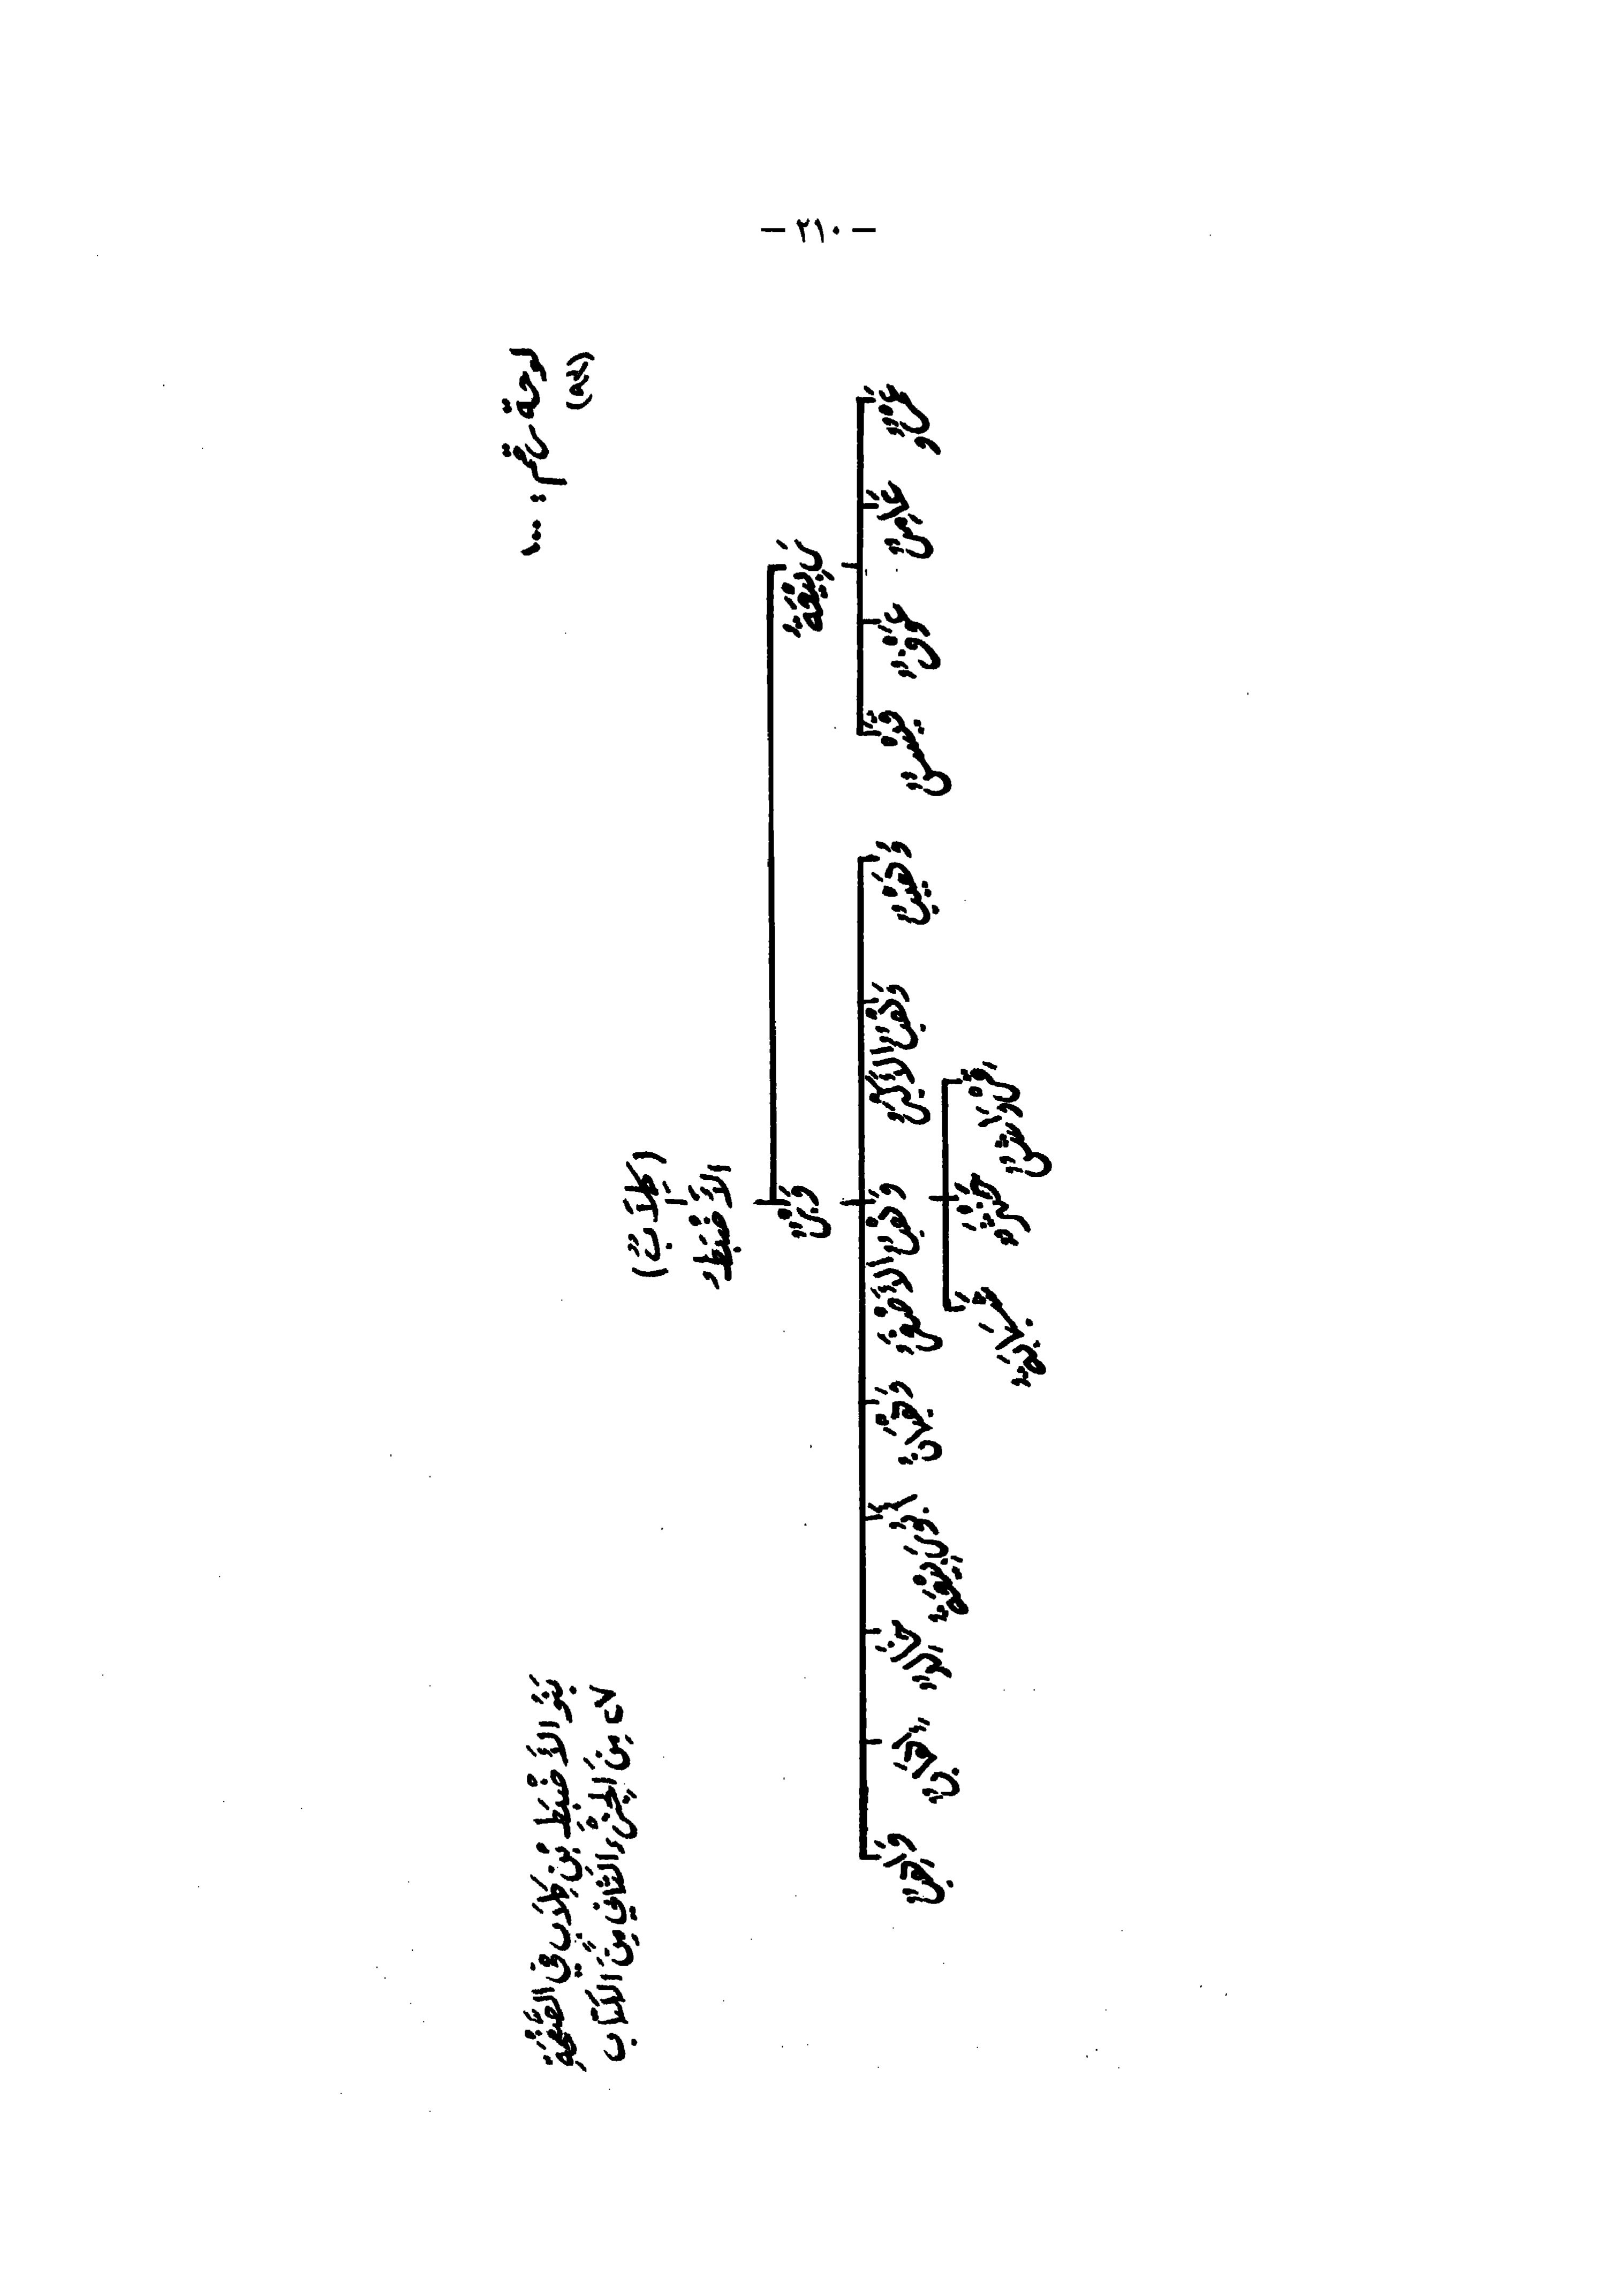 — ٢١٠ —
لوحة رقم: ١٠٠٠
بَنُو الأَضْبَطِ بْنِ كِلَابٍ فِي الصَّفْحَةِ
مِنَ الجُزْءِ الثَّانِي مِنَ الكِتَابِ
(كِلَابٌ)
الأَضْبَطُ
رَبِيْعَةُ
وَبْرٌ
عَمْرٌو
عَامِرٌ
عَوْفٌ
قَيْسٌ
وُهَيْبٌ
وَهْبٌ الأَكْبَرُ
وَهْبٌ الأَصْغَرُ
وَهْبَانُ
أَبُو رَبِيْعَةَ
خَالِدٌ
إِهَابٌ
وَاهِبٌ
قِرْوَاشٌ